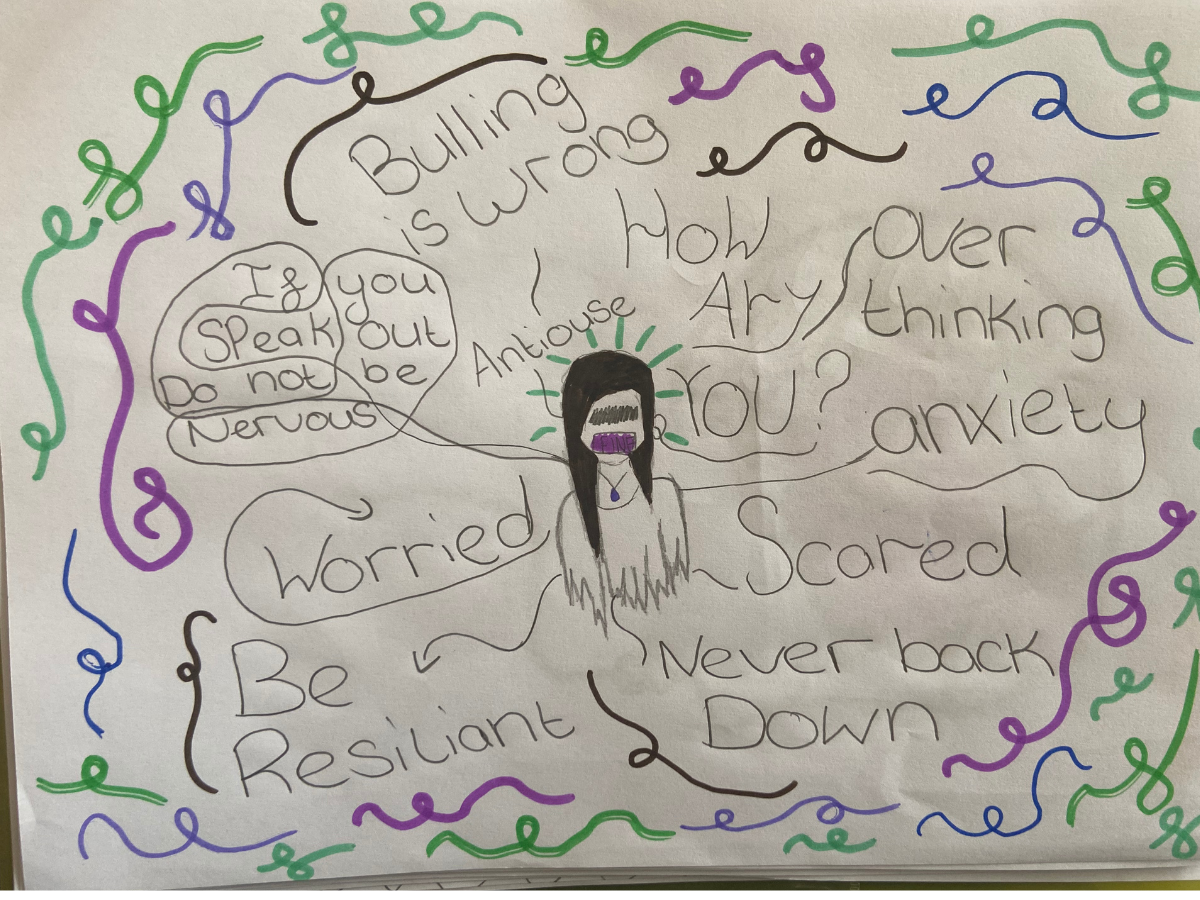 Bulling
is wrong
How
Ary
YOU?
Over
thinking
anxiety
If you
SPeak out
Do not be
Nervous
Antiouse
FINE
Worried
Scared
Be
Resiliant
Never back
Down